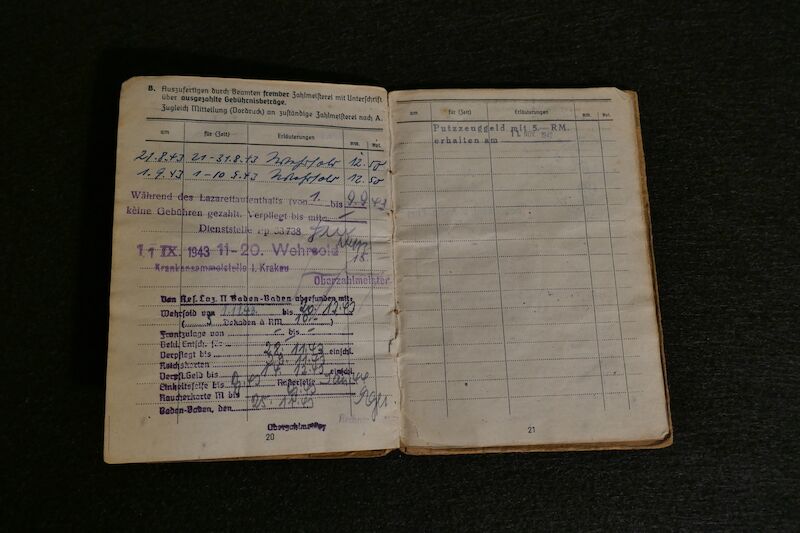 B. Auszufertigen durch Beamten fremder Zahlmeisterei mit Unterschrift
über ausgezahlte Gebührnisbeträge.
Zugleich Mitteilung (Vordruck) an zuständige Zahlmeisterei nach A.
am für (Zeit) Erläuterungen RM. Rpf.
21.8.43 21-31.8.43 Wehrsold 12.50
1.9.43 1-10.9.43 Wehrsold 12.50
Während des Lazarettaufenthalts (von 1. bis 9.9.43
keine Gebühren gezahlt. Verpflegt bis mit
Dienststelle Fp 38738
11 IX. 1943 11-20. Wehrsold
15
Krankensammelstelle I. Krakau
Oberzahlmeister
Von Ref. Laz. II Baden-Baden abgefunden mit:
Wehrsold von 1.11.43 bis 30.12.43
( Dekaden à RM.
Frontzulage von - bis -
Bekl. Entsch. für
Verpflegt bis 28.11.43 einschl.
Reichskarten
Verpfl.Geld bis 12.43 einschl.
Einheitsseife bis Rasierseife
Raucherkarte M bis
Baden-Baden, den 25.11.43
Oberzahlmeister
20
am für (Zeit) Erläuterungen RM. Rpf.
Putzzeuggeld mit 5.— RM.
erhalten am
21